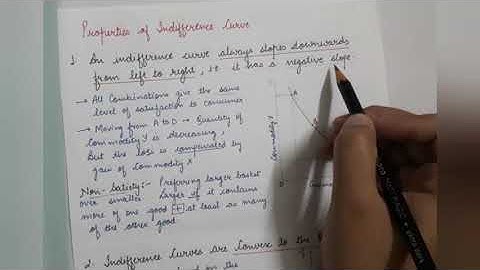 Properties of Indifference Curve
1. An indifference curve always slopes downwards
from left to right, i.e it has a negative slope.
→ All Combinations give the same
level of satisfaction to consumer
→ Moving from A to D → Quantity of
commodity Y is decreasing.
But the loss is compensated by
gain of commodity X
Non-Satiety:- Preferring larger basket
over smaller. Larger if it contains
more of one good + at least as many
of the other good.
Commodity Y
A
0
2. Indifference Curves are Convex to the
on the